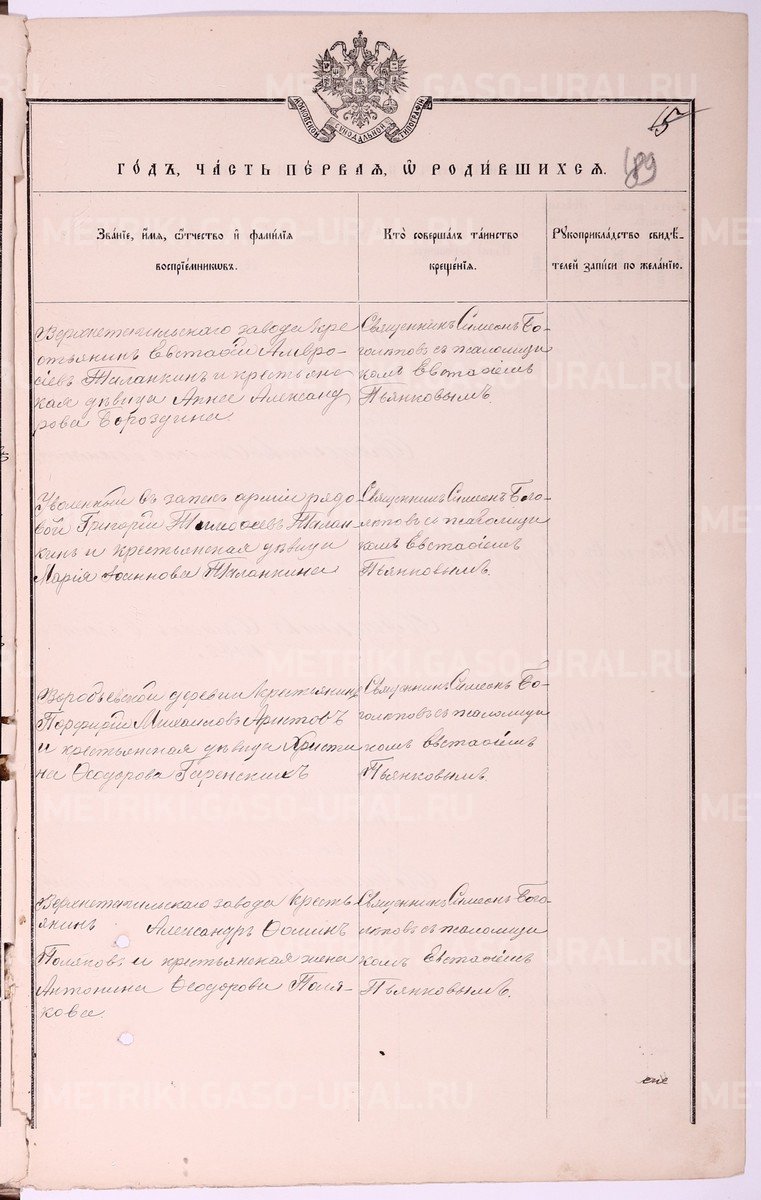 МОСКОВСКОЙ СѴНОДАЛЬНОЙ ТИПОГРАФІИ
5
ГОДЪ, ЧАСТЬ ПЕРВАЯ, Ѿ РОДИВШИХСЯ.
189
Званіе, имя, ѻтчество и фамилія
воспріемниковъ.
Кто совершалъ таинство
крещенія.
Рукоприкладство свидѣ-
телей записи по желанію.
Верхнетагильскаго завода кре
стьянинъ Евстафій Амвро-
сіевъ Тиланкинъ и крестьянс
кая дѣвица Анна Александ
рова Бороздина.
Священникъ Симеонъ Бо-
голюповъ съ псаломщи
комъ Евстафіемъ
Пьянковымъ.
Уволенный въ запасъ арміи рядо
вой Григорій Тимофеевъ Тилан
кинъ и крестьянская дѣвица
Марія Іоаннова Тиланкина
Священникъ Симеонъ Бого-
люповъ съ псаломщи
комъ Евстафіемъ
Пьянковымъ.
Воробьевской деревни крестьянинъ
Порфирій Михаиловъ Аристовъ
и крестьянская дѣвица Христи
на Ѳеодорова Гаренскихъ
Священникъ Симеонъ Бо-
голюповъ съ псаломщи
комъ Евстафіемъ
Пьянковымъ
Верхнетагильскаго завода кресть
янинъ Александръ Ѳоминъ
Поляковъ и крестьянская жена
Антонина Ѳеодорова Поля-
кова.
Священникъ Симеонъ Бого
люповъ съ псаломщи
комъ Евстафіемъ
Пьянковымъ.
METRIKI.GASO-URAL.RU